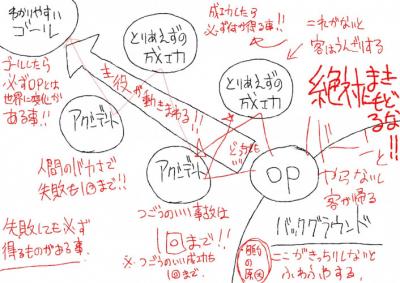 わかりやすい
ゴール
ゴールしたら
必ずOPとは
世界に変化が
ある事!!
とりあえずの
成功
成功したら
必ず何か得る事!!
これがないと
客はうんざりする
とりあえずの
成功
主役が動きまわる!!
絶対にまき
もどるな!!
アクシデント
アクシデント
どっちも
OP
人間のバカさで
失敗も1回まで!!
つごうのいい事故は
1回まで!!
※つごうのいい成功も
1回まで.
失敗しても必ず
得るものがある事.
やらないと
客が帰る
バックグラウンド
ここがきっちりしないと
ふわふわする.